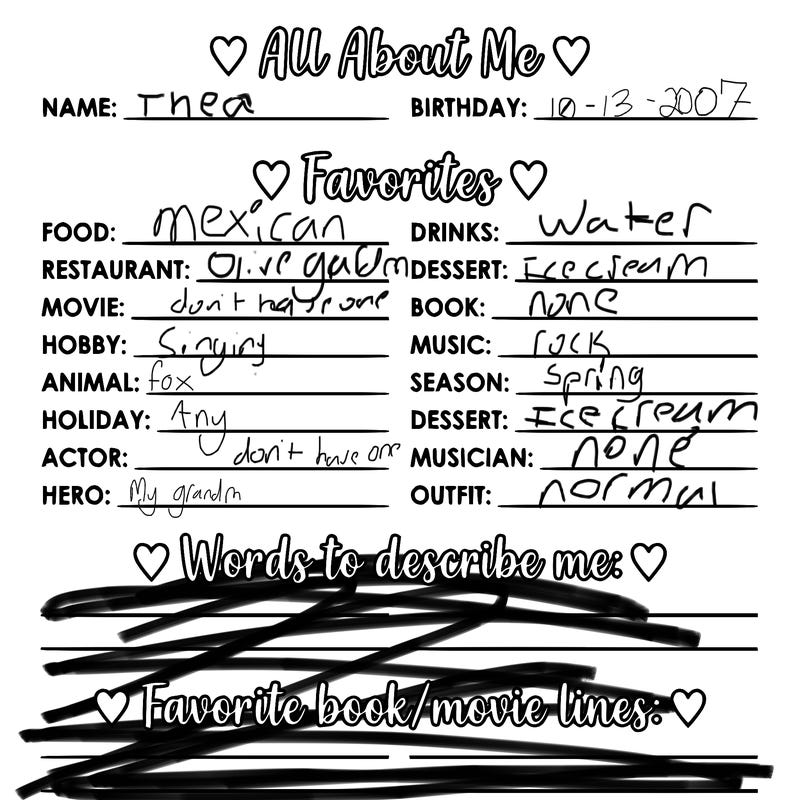 All About Me
NAME: Thea BIRTHDAY: 10-13-2007
Favorites
FOOD: mexican DRINKS: water
RESTAURANT: Olive gardm DESSERT: Ice cream
MOVIE: don't have one BOOK: none
HOBBY: Singing MUSIC: rock
ANIMAL: fox SEASON: spring
HOLIDAY: Any DESSERT: Ice cream
ACTOR: don't have one MUSICIAN: none
HERO: My grandm OUTFIT: normal
Words to describe me:
Favorite book/movie lines: